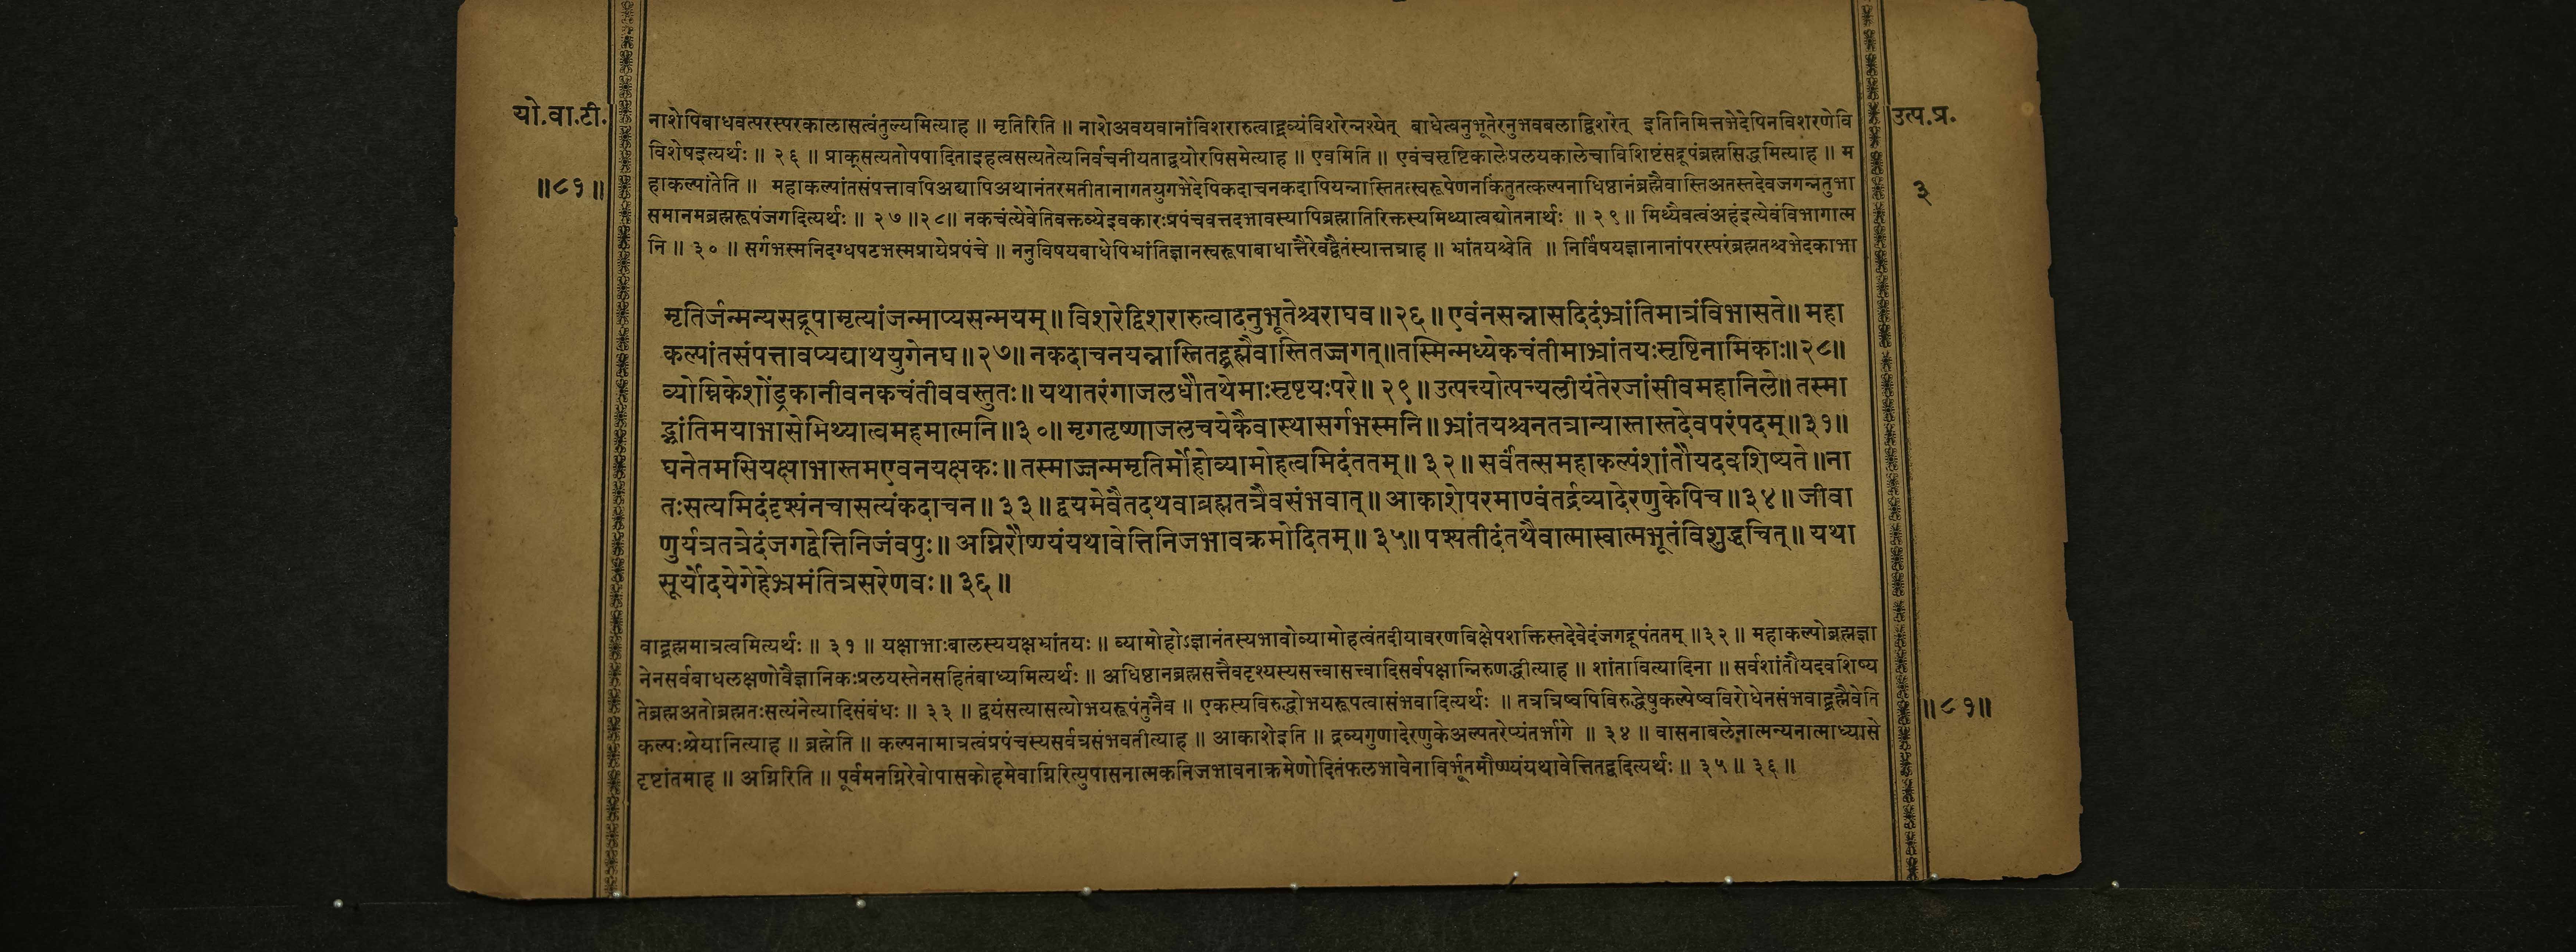 यो.वा.टी.
॥८१॥
उत्प.प्र.
३
नाशेपिबाधवत्परस्परकालासत्वंतुल्यमित्याह ॥ मृतिरिति ॥ नाशेअवयवानांविशरारुत्वाद्द्रव्यंविशरेन्नश्येत् बाधेत्वनुभूतेरनुभवबलाद्विशरेत् इतिनिमित्तभेदेपिनविशरणेवि
विशेषइत्यर्थः ॥ २६ ॥ प्राक्सत्यतोपपादिताइहत्वसत्यतेत्यनिर्वचनीयताद्वयोरपिसमेत्याह ॥ एवमिति ॥ एवंचसृष्टिकालेप्रलयकालेचाविशिष्टंसद्रूपंब्रह्मसिद्धमित्याह ॥ म
हाकल्पांतेति ॥ महाकल्पांतसंपत्तावपिअद्यापिअथानंतरमतीतानागतयुगभेदेपिकदाचनकदापियन्नास्तितत्स्वरूपेणनकिंतुतत्कल्पनाधिष्ठानंब्रह्मैवास्तिअतस्तदेवजगन्नतुभा
समानमब्रह्मरूपंजगदित्यर्थः ॥ २७ ॥२८॥ नकचंत्येवेतिवक्तव्येइवकारःप्रपंचवत्तदभावस्यापिब्रह्मातिरिक्तस्यमिथ्यात्वद्योतनार्थः ॥ २९ ॥ मिथ्यैवत्वंअहंइत्येवंविभागात्म
नि ॥ ३० ॥ सर्गभस्मनिदग्धपटभस्मप्रायेप्रपंचे ॥ ननुविषयबाधेपिभ्रांतिज्ञानस्वरूपाबाधात्तैरेवद्वैतंस्यात्तत्राह ॥ भ्रांतयश्चेति ॥ निर्विषयज्ञानानांपरस्परंब्रह्मतश्चभेदकाभा
मृतिर्जन्मन्यसद्रूपामृत्यांजन्माप्यसन्मयम्॥ विशरेद्विशरारुत्वादनुभूतेश्चराघव॥२६॥ एवंनसन्नासदिदंभ्रांतिमात्रंविभासते॥ महा
कल्पांतसंपत्तावप्यद्याथयुगेनघ॥२७॥ नकदाचनयन्नास्तितद्ब्रह्मैवास्तितज्जगत्॥तस्मिन्मध्येकचंतीमाभ्रांतयःसृष्टिनामिकाः॥२८॥
व्योम्निकेशोंड्रकानीवनकचंतीववस्तुतः॥ यथातरंगाजलधौतथेमाःसृष्टयःपरे॥ २९॥ उत्पत्त्योत्पत्त्यलीयंतेरजांसीवमहानिले॥ तस्मा
द्भ्रांतिमयाभासेमिथ्यात्वमहमात्मनि॥३०॥ मृगतृष्णाजलचयेकैवास्थासर्गभस्मनि॥भ्रांतयश्चनतत्रान्यास्तास्तदेवपरंपदम्॥३१॥
घनेतमसियक्षाभास्तमएवनयक्षकः॥ तस्माज्जन्ममृतिर्मोहोव्यामोहत्वमिदंततम्॥ ३२॥ सर्वंतत्समहाकल्पंशांतौयदवशिष्यते॥ना
तःसत्यमिदंदृश्यंनचासत्यंकदाचन॥ ३३॥ द्वयमेवैतदथवाब्रह्मतत्रैवसंभवात्॥ आकाशेपरमाण्वंतर्द्रव्यादेरणुकेपिच॥३४॥ जीवा
णुर्यत्रतत्रेदंजगद्वेत्तिनिजंवपुः॥ अग्निरौष्ण्यंयथावेत्तिनिजभावक्रमोदितम्॥ ३५॥ पश्यतीदंतथैवात्मास्वात्मभूतंविशुद्धचित्॥ यथा
सूर्योदयेगेहेभ्रमंतित्रसरेणवः॥ ३६॥
वाद्ब्रह्ममात्रत्वमित्यर्थः ॥ ३१ ॥ यक्षाभाःबालस्ययक्षभ्रांतयः ॥ व्यामोहोऽज्ञानंतस्यभावोव्यामोहत्वंतदीयावरणविक्षेपशक्तिस्तदेवेदंजगद्रूपंततम् ॥३२॥ महाकल्पोब्रह्मज्ञा
नेनसर्वबाधलक्षणोवैज्ञानिकःप्रलयस्तेनसहितंबाध्यमित्यर्थः ॥ अधिष्ठानब्रह्मसत्तैवदृश्यस्यसत्त्वासत्त्वादिसर्वपक्षान्निरुणद्धीत्याह ॥ शांतावित्यादिना ॥ सर्वशांतौयदवशिष्य
तेब्रह्मअतोब्रह्मतःसत्यंनेत्यादिसंबंधः ॥ ३३ ॥ द्वयंसत्यासत्योभयरूपंतुनैव ॥ एकस्यविरुद्धोभयरूपत्वासंभवादित्यर्थः ॥ तत्रत्रिष्वपिविरुद्धेषुकल्पेष्वविरोधेनसंभवाद्ब्रह्मैवेति
कल्पःश्रेयानित्याह ॥ ब्रह्मेति ॥ कल्पनामात्रत्वंप्रपंचस्यसर्वत्रसंभवतीत्याह ॥ आकाशेइति ॥ द्रव्यगुणादेरणुकेअल्पतरेप्यंतर्भागे ॥ ३४ ॥ वासनाबलेनात्मन्यनात्माध्यासे
दृष्टांतमाह ॥ अग्निरिति ॥ पूर्वमनग्निरेवोपासकोहमेवाग्निरित्युपासनात्मकनिजभावनाक्रमेणोदितंफलभावेनाविर्भूतमौष्ण्यंयथावेत्तितद्वदित्यर्थः ॥ ३५ ॥ ३६ ॥
॥ ८१॥